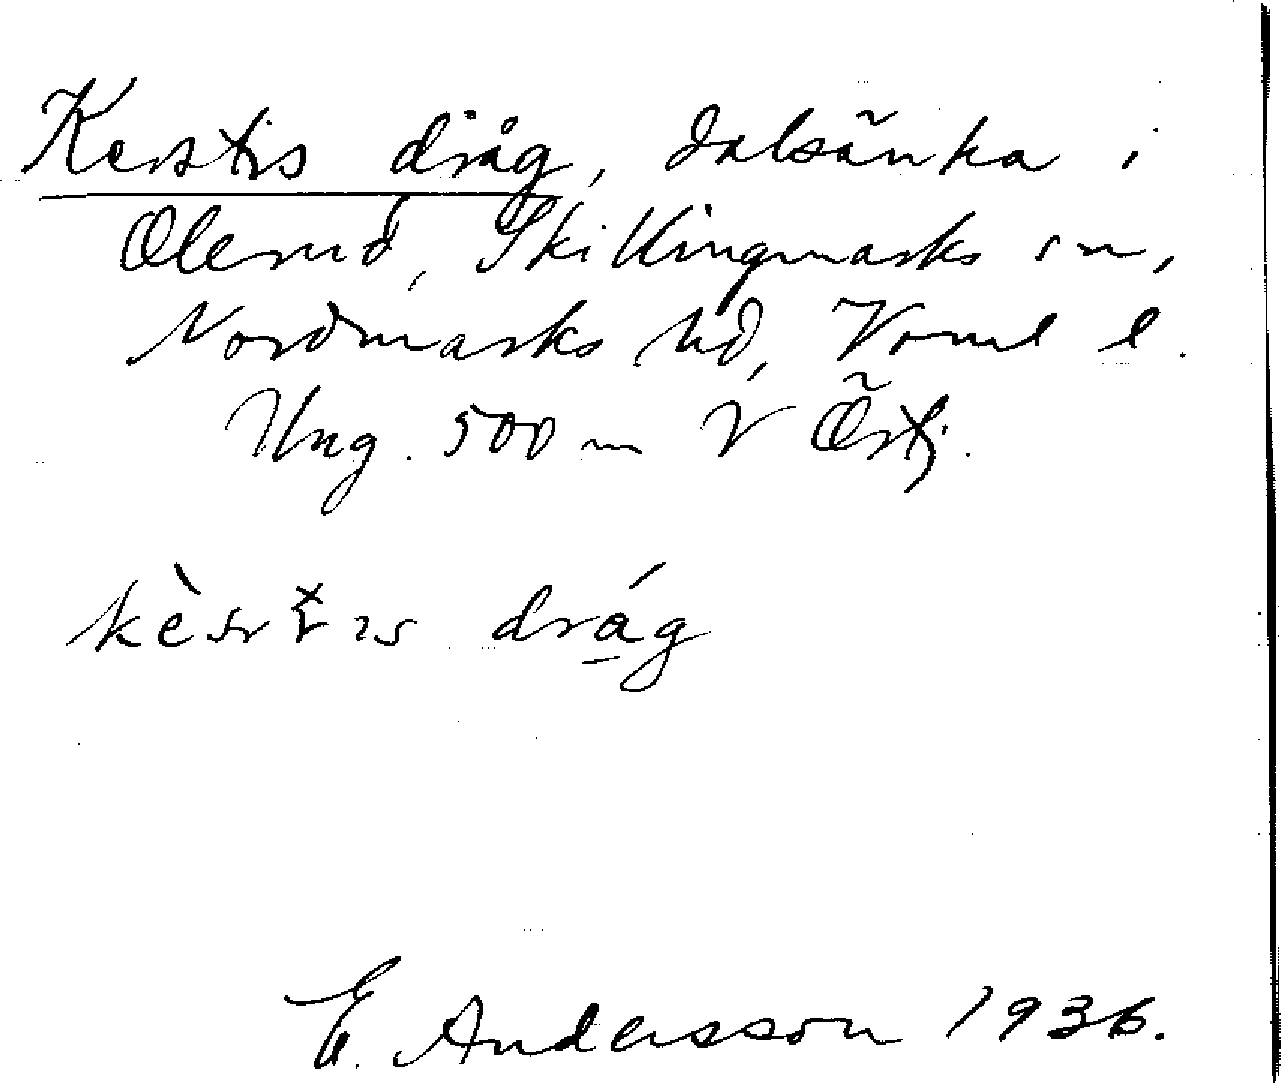 Kerstis dråg, dalsänka i
Olerud, Skillingmarks sn,
Nordmarks hd, Vrml l.
Ung. 500 m V Östj.
dråg
E. Andersson 1936.